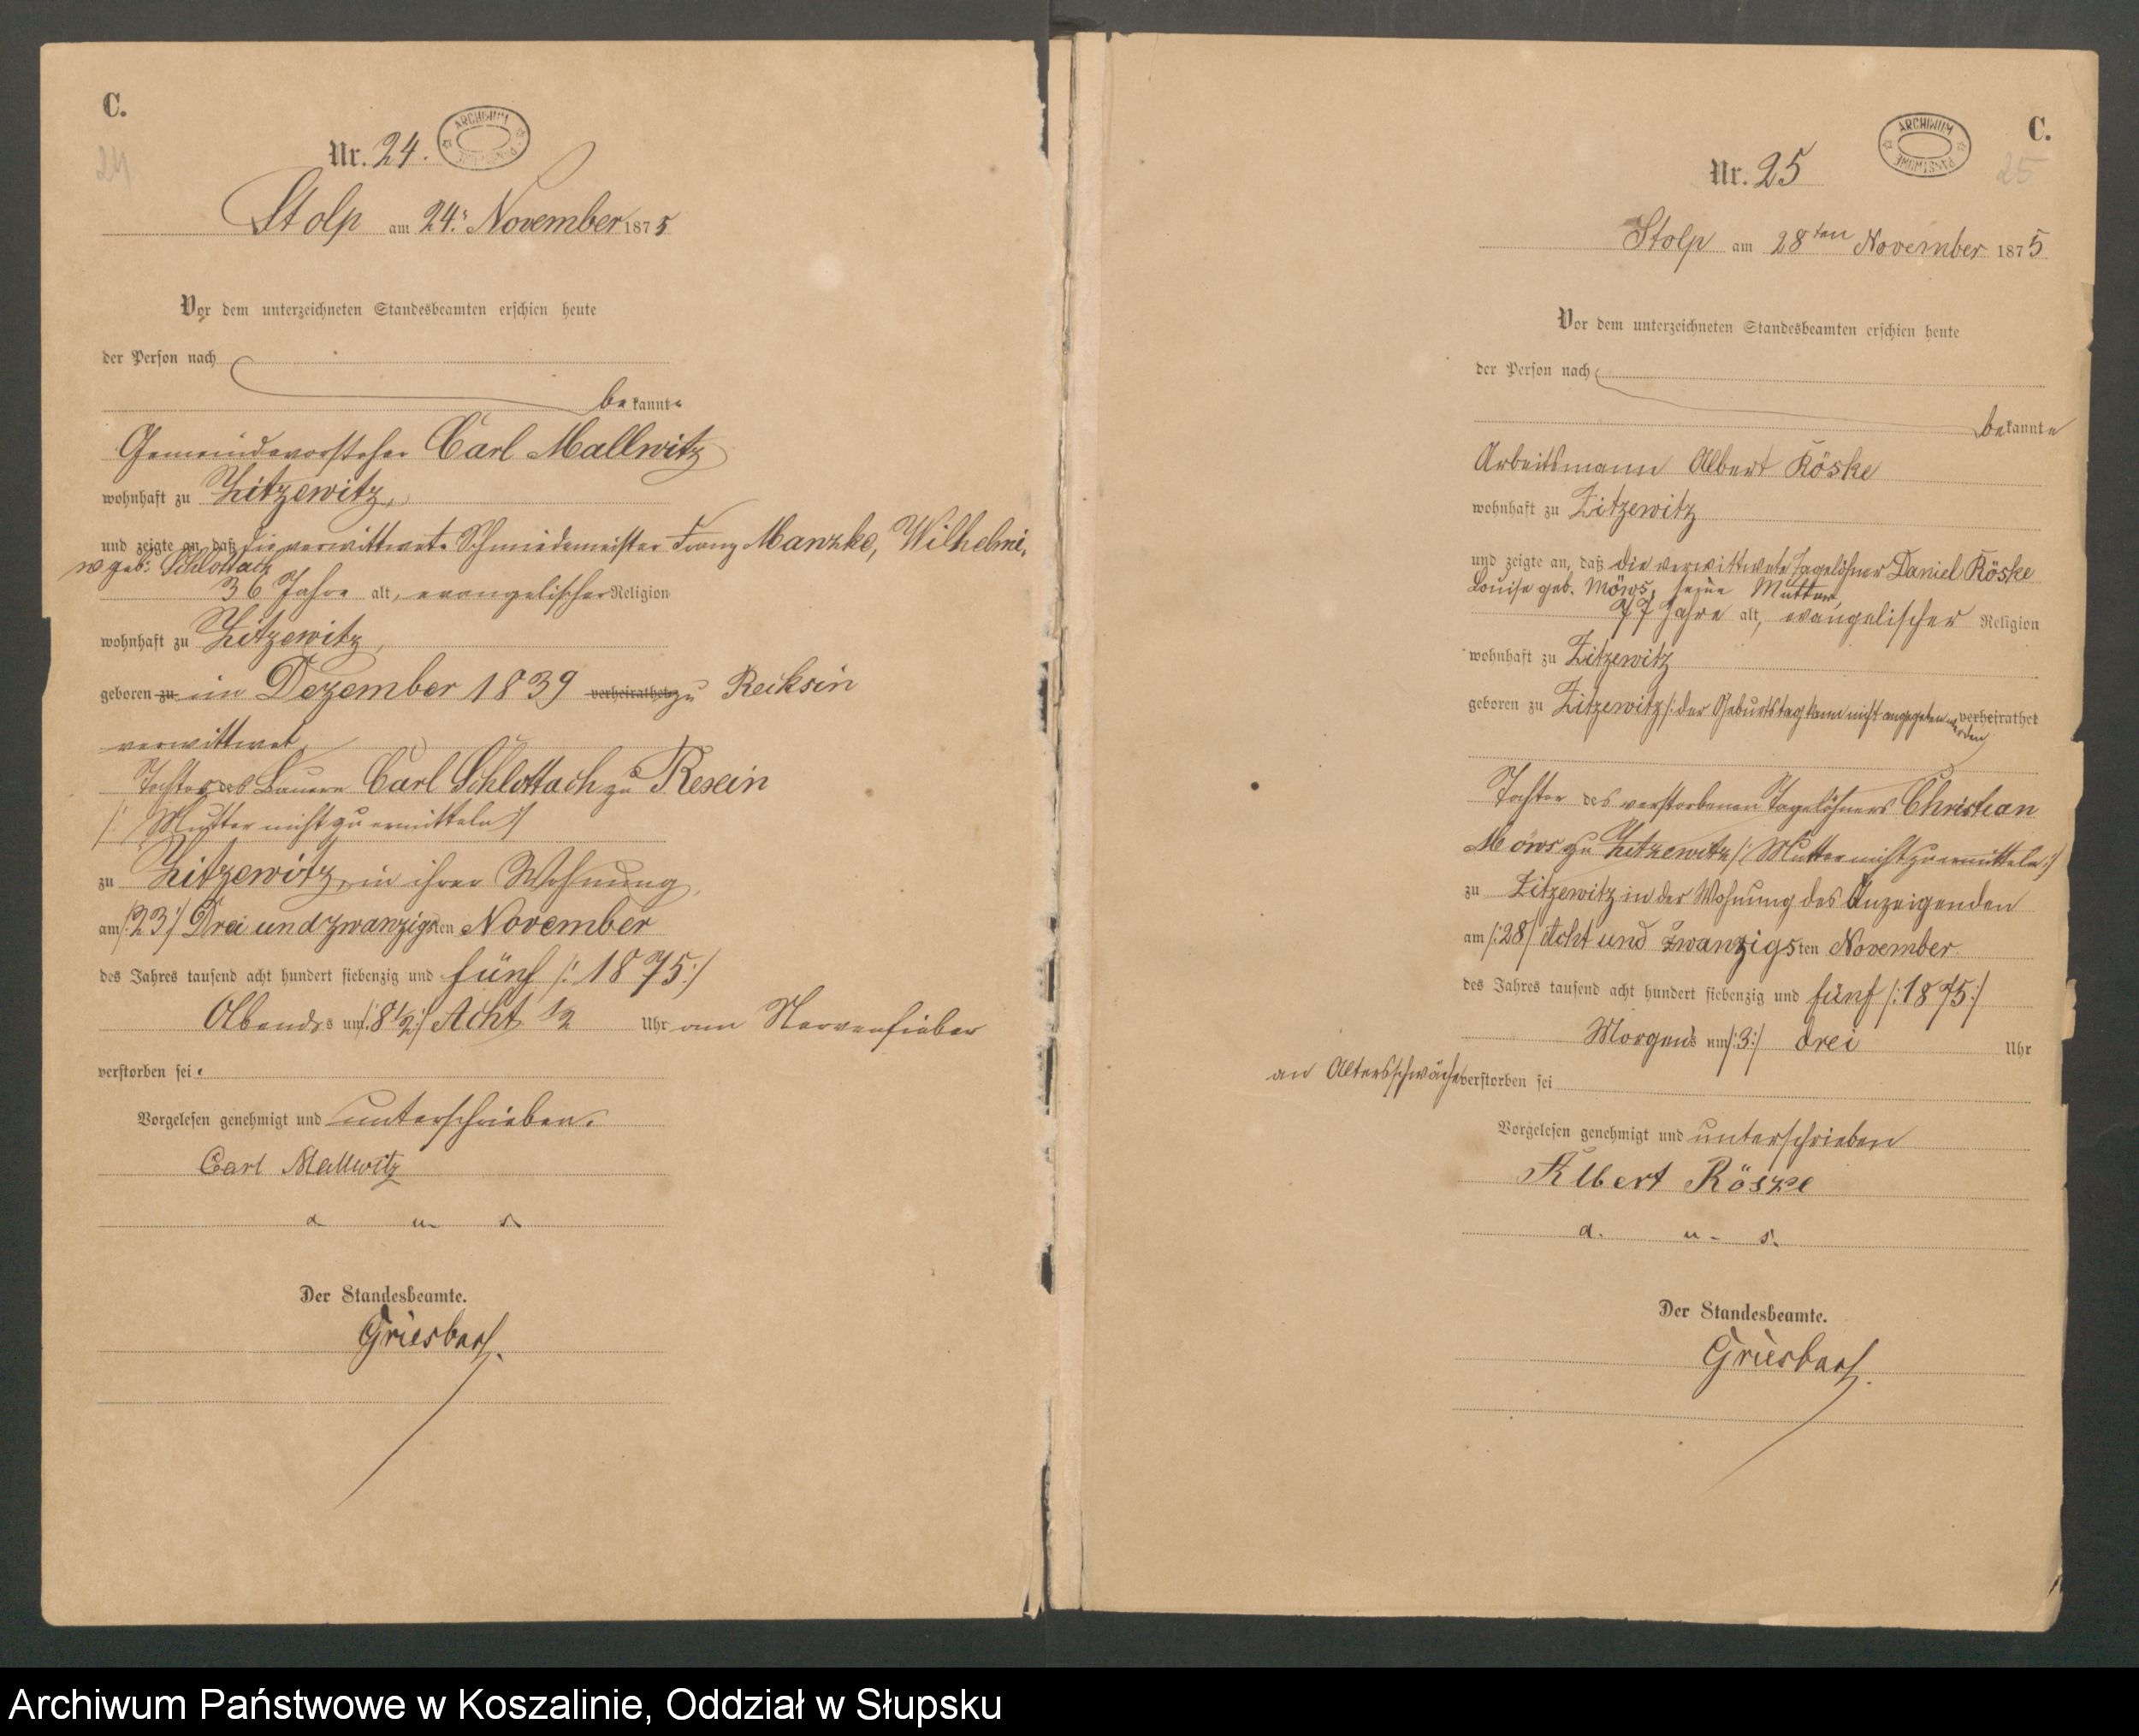 C.
24
Nr. 24.
ARCHIWUM
Stolp am 24. November 1875
Vor dem unterzeichneten Standesbeamten erschien heute
der Person nach
bekannte
Gemeindevorsteher Carl Mallwitz
wohnhaft zu Zitzewitz,
und zeigte an, daß die verwittwete Schmiedemeister Franz Manzke, Wilhelmi,
ne geb: Schlottach
36 Jahre alt, evangelischer Religion
wohnhaft zu Zitzewitz,
geboren zu im Dezember 1839 verheirathet zu Recksin
verwittwet,
Tochter des Bauern Carl Schlottach zu
/: Mutter nicht zu ermitteln :/
zu Zitzewitz, in ihrer Wohnung,
am /:23:/ Drei und zwanzigsten November
des Jahres tausend acht hundert siebenzig und fünf /: 1875:/
Abends um /:8 1/2:/ Acht 1/2 Uhr am Nervenfieber
verstorben sei.
Vorgelesen genehmigt und unterschrieben.
Carl Mallwitz
a u s
Der Standesbeamte.
Griesbach.
C.
25
ARCHIWUM PAŃSTWOWE
Nr. 25
Stolp am 28ten November 1875
Vor dem unterzeichneten Standesbeamten erschien heute
der Person nach
bekannte
Arbeitsmann Albert Röske
wohnhaft zu Zitzewitz
und zeigte an, daß die verwittwete Tagelöhner Daniel Röske
Louise geb. Möws, seine Mutter,
77 Jahre alt, evangelischer Religion
wohnhaft zu Zitzewitz
geboren zu Zitzewitz /: der Geburtstag kann nicht angegeben werden verheirathet
Tochter des verstorbenen Tagelöhners Christian
Möws zu Zitzewitz /: Mutter nicht zu ermitteln :/
zu Zitzewitz in der Wohnung des Anzeigenden
am /:28:/ Acht und zwanzigsten November
des Jahres tausend acht hundert siebenzig und fünf /:1875:/
Morgens um /:3:/ drei Uhr
an Altersschwäche verstorben sei
Vorgelesen genehmigt und unterschrieben
Albert Röske
a. u. s.
Der Standesbeamte.
Griesbach.
Archiwum Państwowe w Koszalinie, Oddział w Słupsku